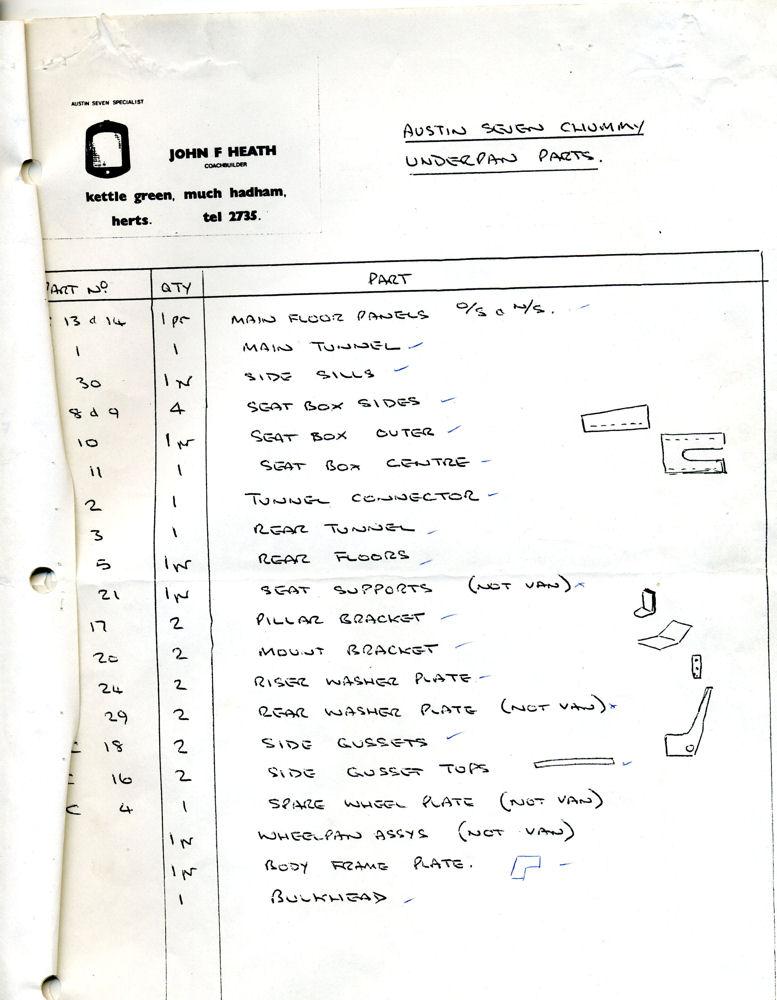 AUSTIN SEVEN SPECIALIST
JOHN F HEATH
COACHBUILDER
kettle green, much hadham,
herts. tel 2735.
AUSTIN SEVEN CHUMMY
UNDERPAN PARTS.
PART Nº QTY PART
13 & 14 1 pr MAIN FLOOR PANELS O/S & N/S.
1 1 MAIN TUNNEL
30 SIDE SILLS
8 & 9 4 SEAT BOX SIDES
10 SEAT BOX OUTER
11 1 SEAT BOX CENTRE
2 1 TUNNEL CONNECTOR
3 1 REAR TUNNEL
5 REAR FLOORS
21 SEAT SUPPORTS (NOT VAN)
17 2 PILLAR BRACKET
20 2 MOUNT BRACKET
24 2 RISER WASHER PLATE
29 2 REAR WASHER PLATE (NOT VAN)
18 2 SIDE GUSSETS
16 2 SIDE GUSSET TOPS
C 4 1 SPARE WHEEL PLATE (NOT VAN)
WHEELPAN ASSYS (NOT VAN)
BODY FRAME PLATE.
1 BULKHEAD